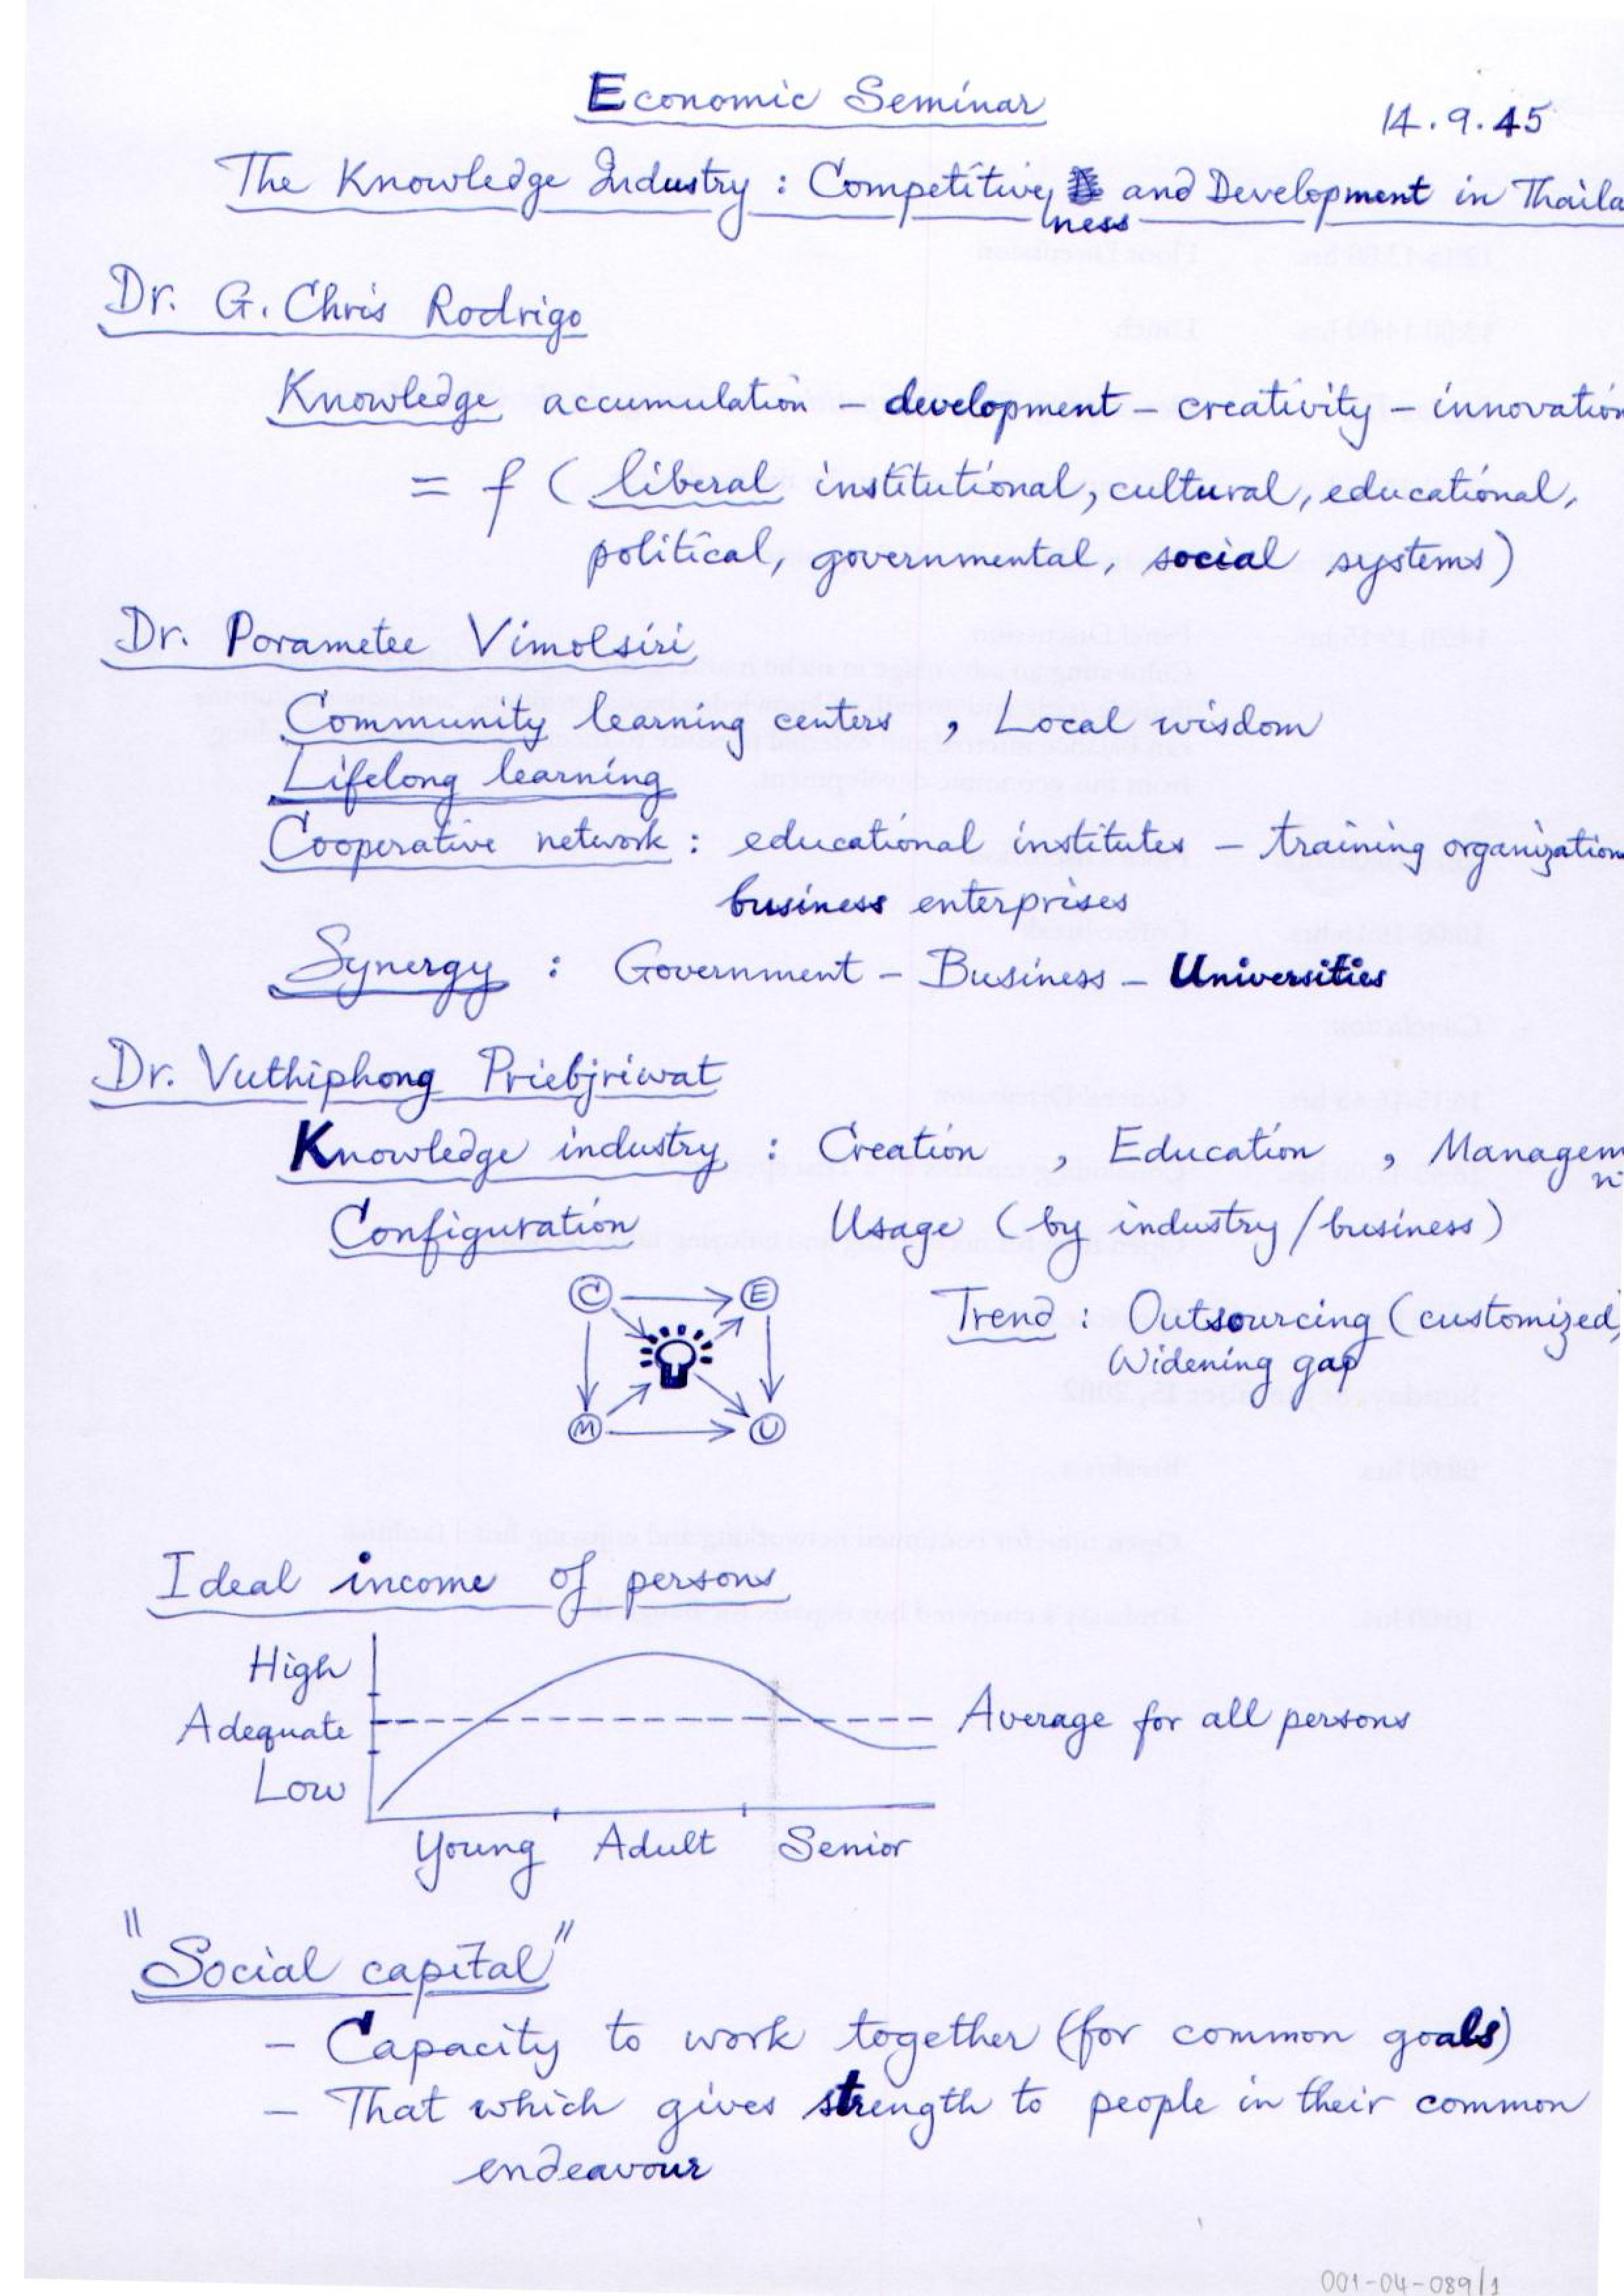 Economic Seminar
14.9.45
The Knowledge Industry : Competitiveness and Development in Thaila
Dr. G. Chris Rodrigo
Knowledge accumulation – development – creativity – innovation
= f ( liberal institutional, cultural, educational,
political, governmental, social systems)
Dr. Porametee Vimolsiri
Community learning centers , Local wisdom
Lifelong learning
Cooperative network : educational institutes – training organization
business enterprises
Synergy : Government – Business – Universities
Dr. Vuthiphong Priebjriwat
Knowledge industry : Creation , Education , Managem
Configuration Usage (by industry/business)
C E
Trend : Outsourcing (customized,
Widening gap
M U
Ideal income of persons
High
Adequate Average for all persons
Low
Young Adult Senior
"Social capital"
– Capacity to work together (for common goals)
– That which gives strength to people in their common
endeavour
001-04-089/1